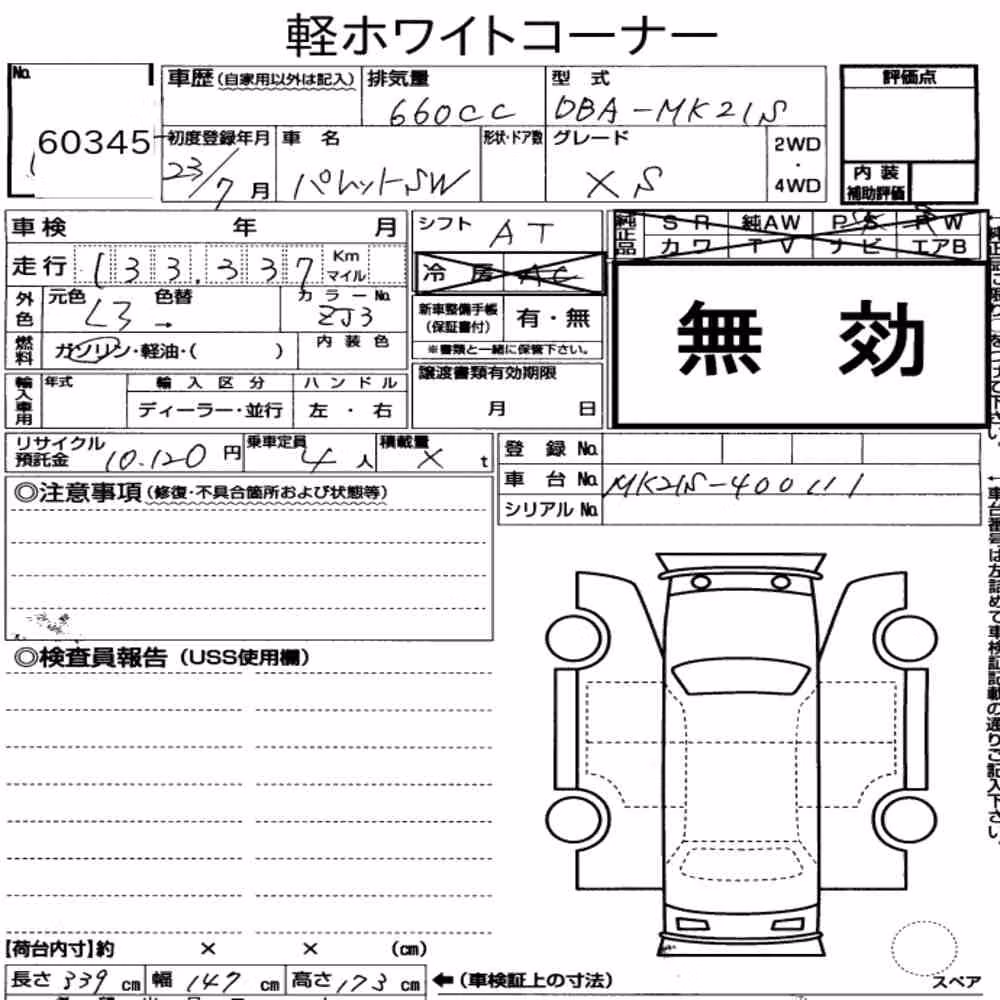 軽ホワイトコーナー
No. 60345
車歴(自家用以外は記入) 排気量 660CC 型式 DBA-MK21S 評価点
初度登録年月 23/7月 車名 パレットSW 形状・ドア数 グレード XS 2WD・4WD 内装補助評価
車検 年 月 シフト AT 純正品 SR 純AW PS PW
カワ TV ナビ エアB
走行 133,337 Km マイル 冷房 AC
無効
外色 元色 L3 色替 → カラーNo. ZJ3 新車整備手帳(保証書付) 有・無
燃料 ガソリン・軽油・( ) 内装色 ※書類と一緒に保管下さい。
輸入車用 年式 輸入区分 ハンドル 譲渡書類有効期限
ディーラー・並行 左・右 月 日
リサイクル預託金 10.120円 乗車定員 4人 積載量 X t 登録No.
車台No. MK21S-400111
シリアルNo.
◎注意事項(修復・不具合箇所および状態等)
◎検査員報告(USS使用欄)
←車台番号は左詰めで車検証記載の通りご記入下さい。
【荷台内寸】約 × × (cm)
長さ 339 cm 幅 147 cm 高さ 173 cm ←(車検証上の寸法) スペア